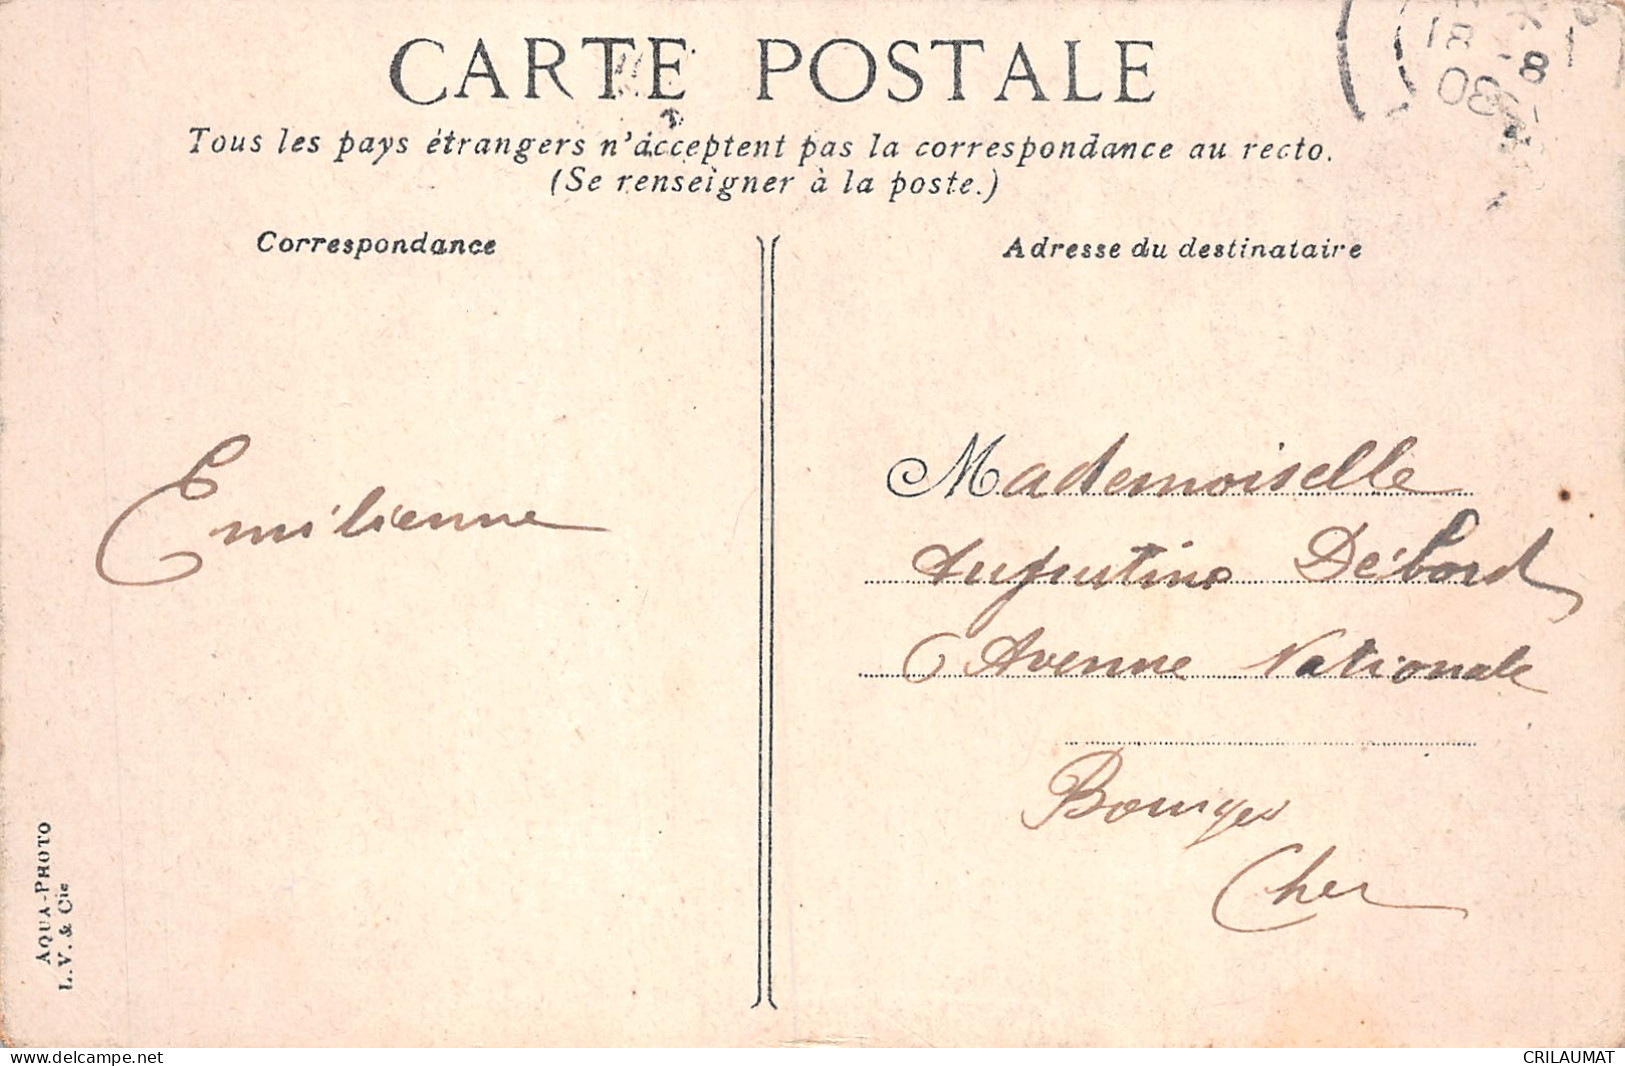 CARTE POSTALE
Tous les pays étrangers n'acceptent pas la correspondance au recto.
(Se renseigner à la poste.)
Correspondance
Adresse du destinataire
Emilienne
Mademoiselle
Augustine Débord
Avenue Nationale
Bourges
Cher
AQUA-PHOTO
L.V. & Cie
delcampe.net
CRILAUMAT